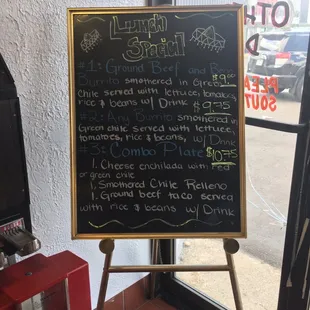 Lunch
Special
#1: Ground Beef and Bean
Burrito smothered in Green
Chile served with lettuce, tomatoes,
rice & beans w/ Drink $9.75
#2: Any Burrito smothered in
Green chile served w/ lettuce,
tomatoes, rice & beans, w/ Drink
#3: Combo Plate $10.75
1. Cheese enchilada with Red
or green chile
1. Smothered Chile Relleno
1. Ground beef taco served
with rice & beans w/ Drink
OTH
D
PLEA
SOUT